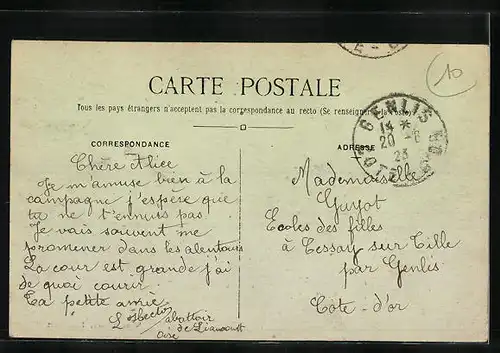 CARTE POSTALE
Tous les pays étrangers n'acceptent pas la correspondance au recto (Se renseigner à la Poste)
CORRESPONDANCE
ADRESSE
GENLIS
14 *
20 - 6
23
CÔTE D'OR
10
Chère Alice
Je m'amuse bien à la
campagne j'espère que
tu ne t'ennuis pas!
Je vais souvent me
promener dans les alentours
La cour est grande j'ai
de quoi courir.
Ta petite amie
abattoir
de Liancourt
Oise
Mademoiselle
Guyot
Ecoles des filles
à Cessay sur Tille
par Genlis
Côte-d'or